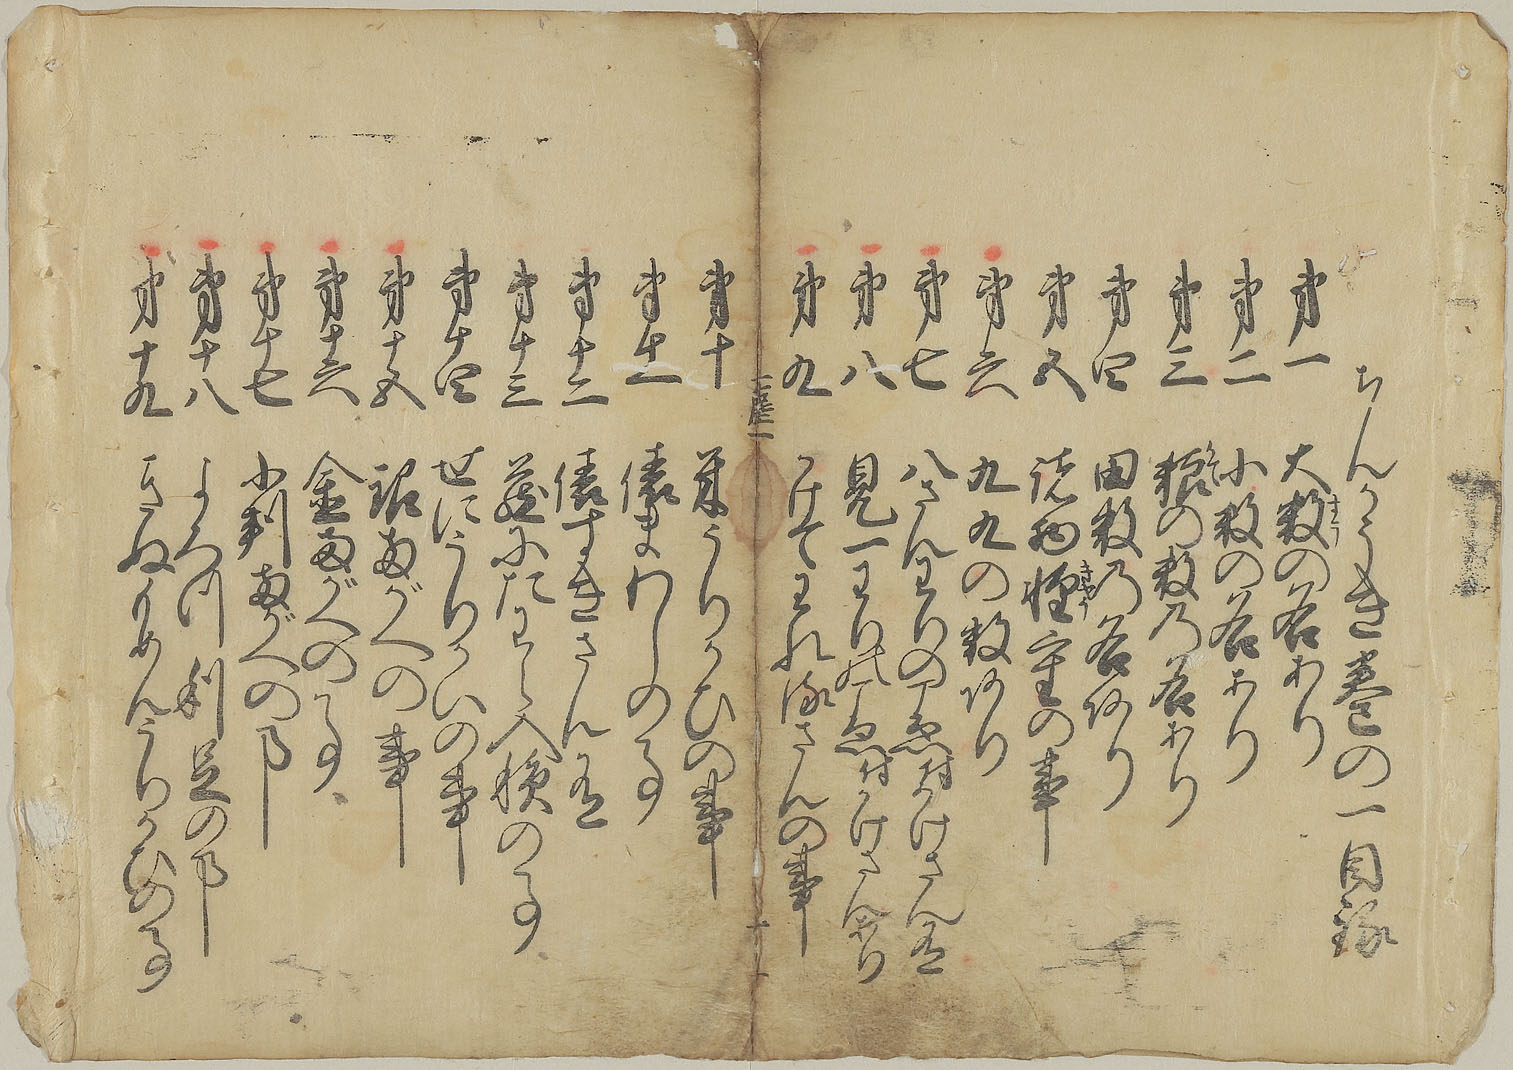 ぢんかうき巻の一目録
第一 大数の名あり
第二 小数の名あり
第三 粮の数乃名あり
第四 田数乃名あり
第五 諸物軽重の事
第六 九九の数あり
第七 八さんわりの事付かけさん有
第八 見一わりの事付かけさんあり
第九 かけてわれるさんの事
第十 米うりかひの事
第十一 俵まわしの事
第十二 俵すきさん有
第十三 蔵にたわら入積の事
第十四 せにうりかいの事
第十五 銀両がへの事
第十六 金両がへの事
第十七 小判両がへの事
第十八 よろつ利足の事
第十九 きぬもめんうりかひの事